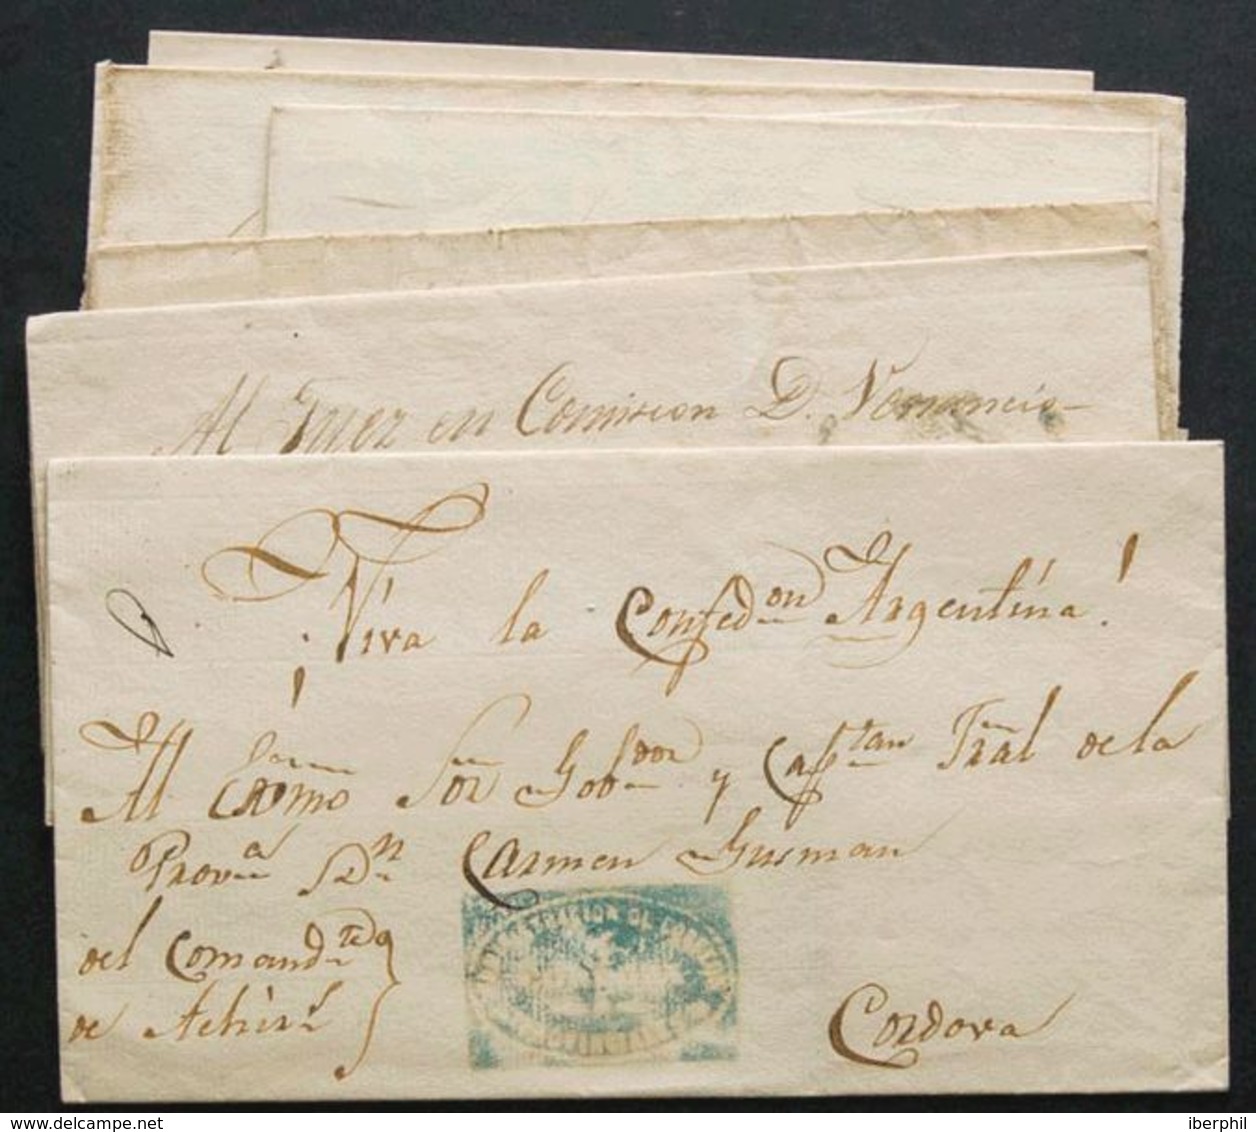 Al Juez en Comision D. Venancio
Viva la Confedon Argentina!
Al Exmo Sor Gobdor y Captan Jral de la
Prova Dn Carmen Gusman
del Comandte
de Achirs
ADMINISTRACION DE CORREOS
Cordova
iberphil